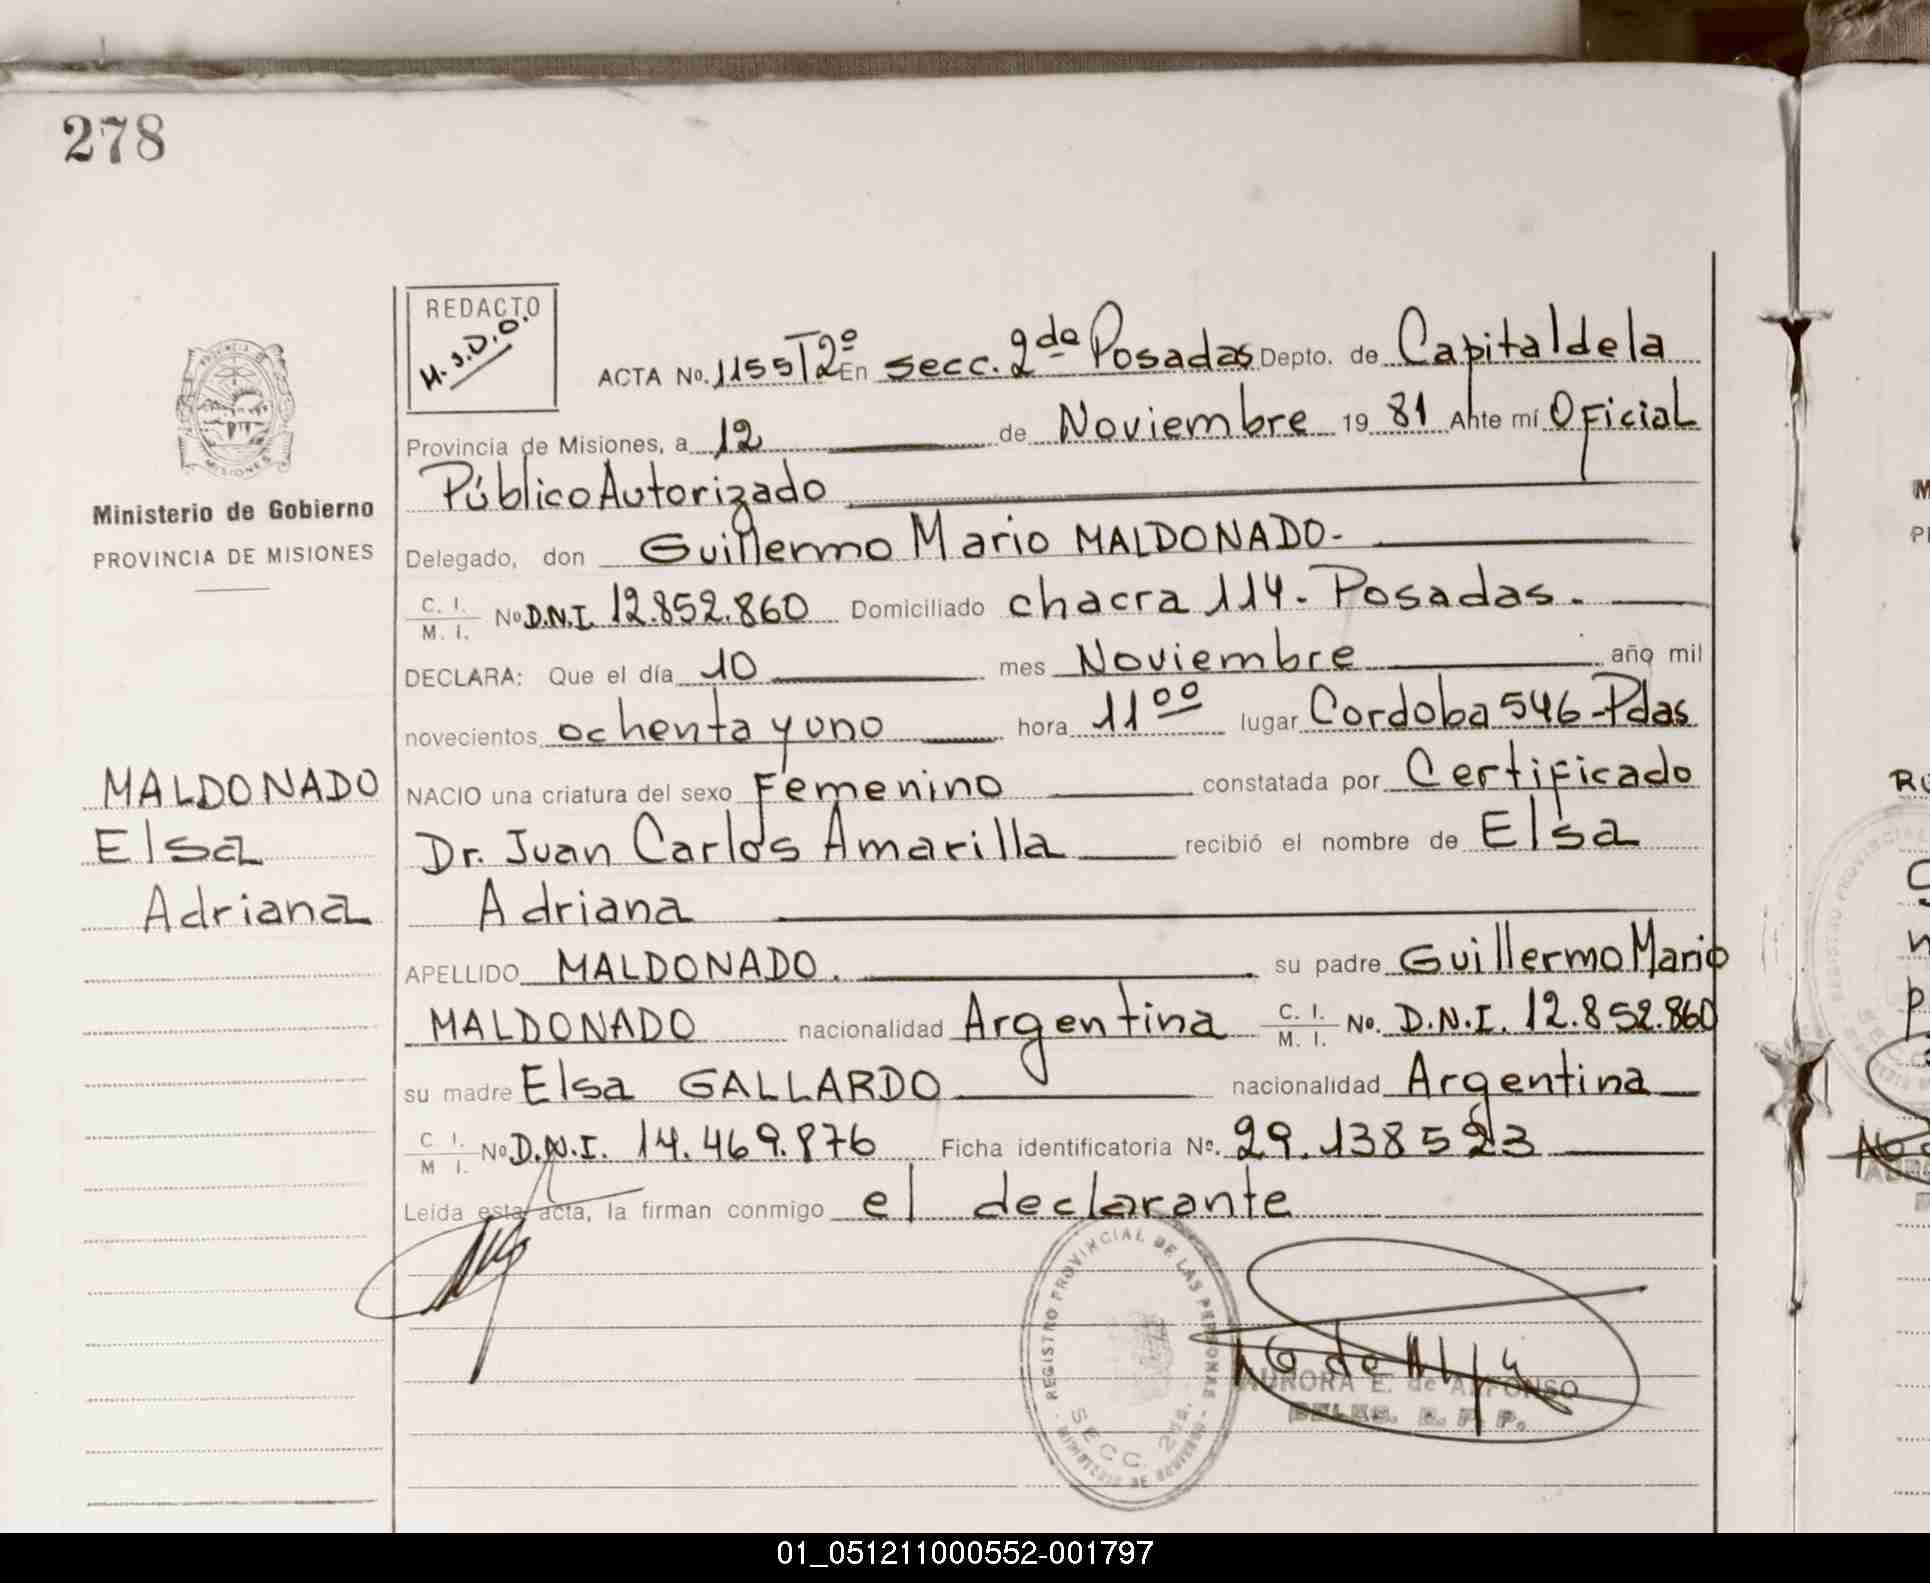 278
REDACTO
M.J.D.O.
ACTA No. 1155 T2º En secc. 2da Posadas Depto. de Capital de la
Provincia de Misiones, a 12 de Noviembre 1981 Ante mí Oficial
Público Autorizado
Delegado, don Guillermo Mario MALDONADO.-
C. I. / M. I. No D.N.I. 12.852.860 Domiciliado chacra 114.- Posadas.-
DECLARA: Que el día 10 mes Noviembre año mil
novecientos ochenta y uno hora 11 00 lugar Cordoba 546-Pdas
NACIO una criatura del sexo Femenino constatada por Certificado
Dr. Juan Carlos Amarilla recibió el nombre de Elsa
Adriana
APELLIDO MALDONADO. su padre Guillermo Mario
MALDONADO nacionalidad Argentina C. I. / M. I. No. D.N.I. 12.852.860
su madre Elsa GALLARDO nacionalidad Argentina
C I. / M I. No D.N.I. 14.469.876 Ficha identificatoria No. 29.138523
Leída esta acta, la firman conmigo el declarante
PROVINCIA DE
MISIONES
Ministerio de Gobierno
PROVINCIA DE MISIONES
MALDONADO
Elsa
Adriana
REGISTRO PROVINCIAL DE LAS PERSONAS
SECC. 2da.
MINISTERIO DE GOBIERNO
AURORA E. de ALFONSO
DELEG. R. P. P.
01_051211000552-001797